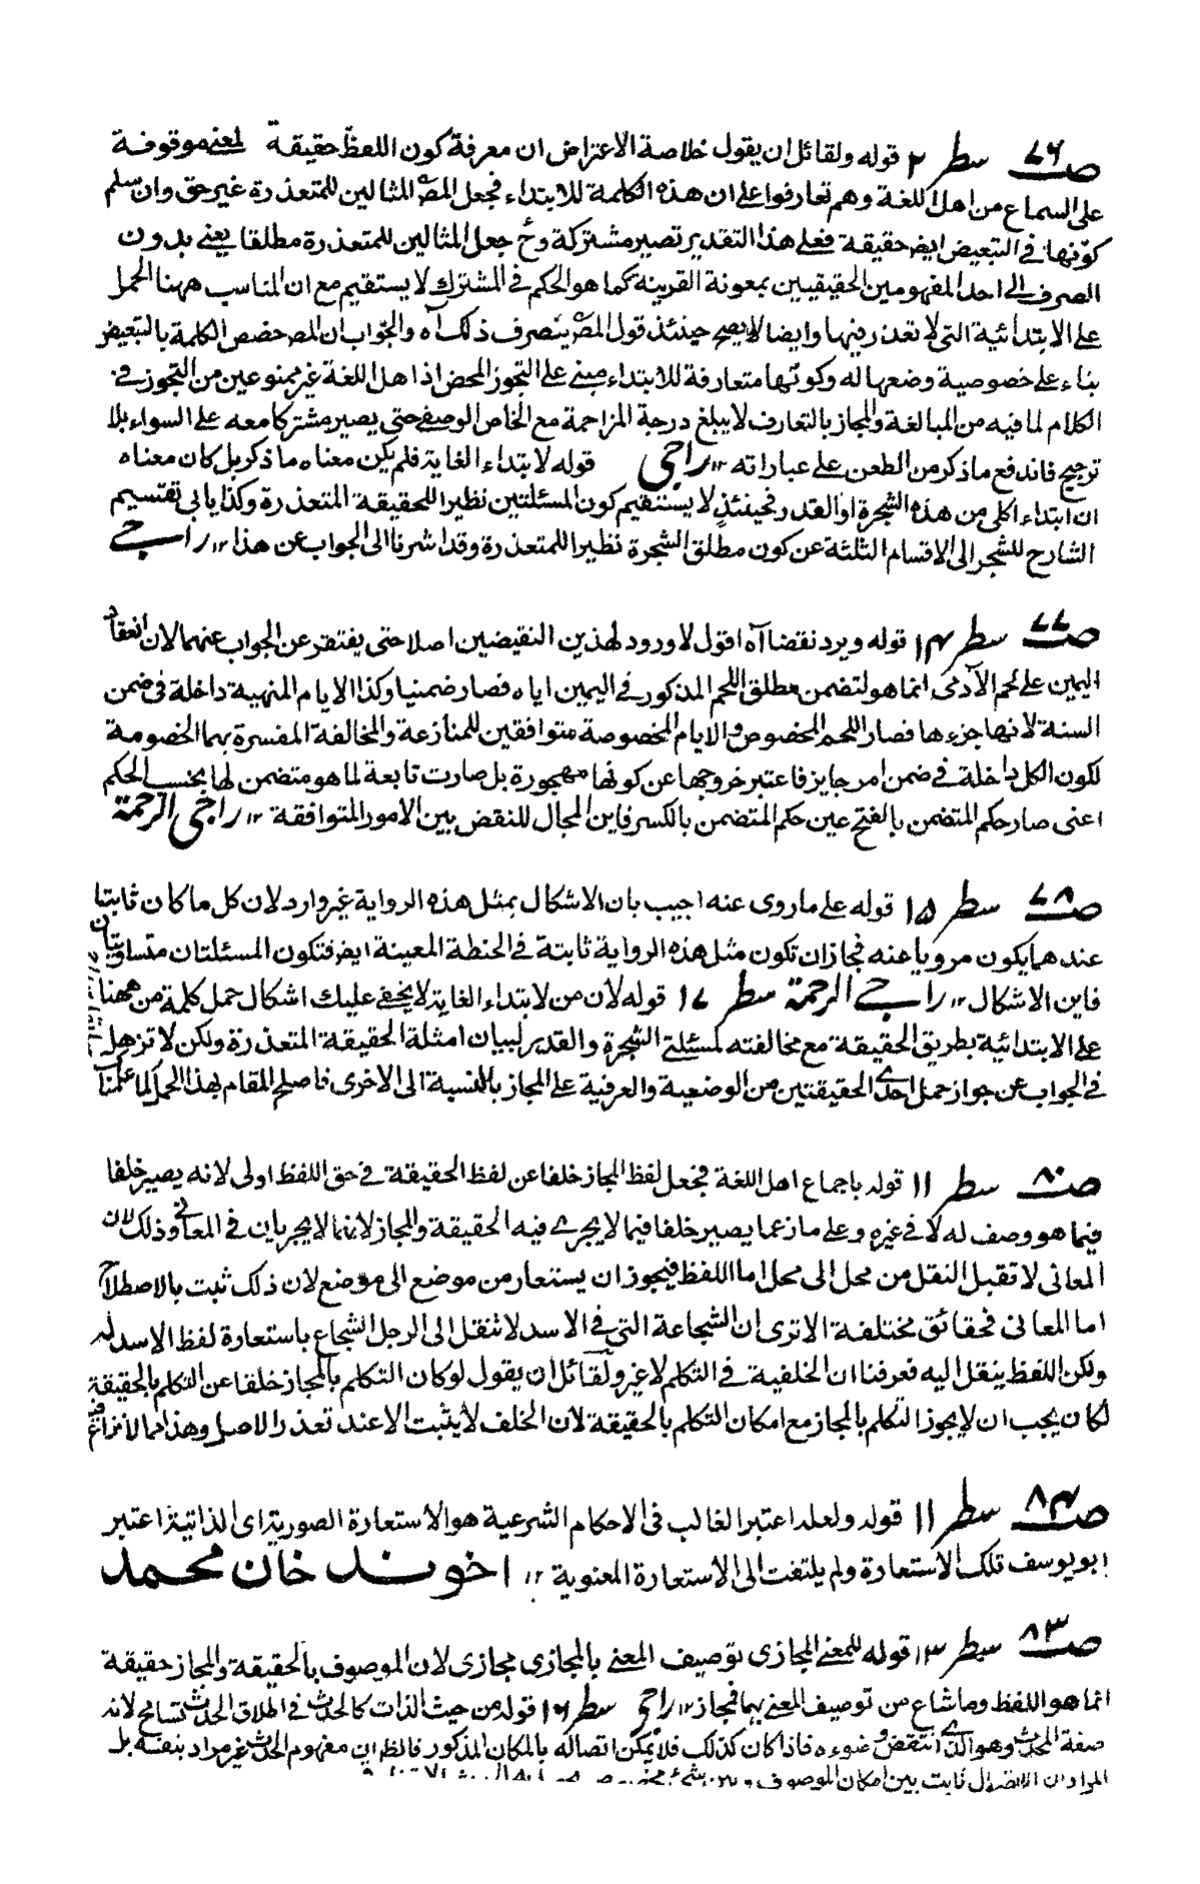 صـ٧٦ سطر ٢ قوله ولقائل ان يقول خلاصة الاعتراض ان معرفة كون اللفظ حقيقة لمعنى موقوفة
على السماع من اهل اللغة وهم تعارفوا على ان هذه الكلمة للابتداء فجعل المص المثالين للمتعذرة غير حق وان سلم
كونها في التبعيض ايض حقيقة فعلى هذا التقدير تصير مشتركة وح جعل المثالين للمتعذرة مطلقا يعني بدون
الصرف الى احد المفهومين الحقيقيين بمعونة القرينة كما هو الحكم في المشترك لا يستقيم مع ان المناسب ههنا الحمل
على الابتدائية التي لا تعذر فيها وايضا لا يصح حينئذ قول المص ينصرف ذلك آه والجواب ان المص خصص الكلمة بالتبعيض
بناء على خصوصية وضعها له وكونها متعارفة للابتداء مبني على التجوز المحض اذ اهل اللغة غير ممنوعين من التجوز في
الكلام لما فيه من المبالغة والمجاز بالتعارف لا يبلغ درجة المزاحمة مع الخاص الوضعي حتى يصير مشتركا معه على السواء بلا
ترجيح فاندفع ما ذكر من الطعن على عباراته ١٢ راجى قوله لابتداء الغاية فلم يكن معناه ما ذكر بل كان معناه
ان ابتداء اكلي من هذه الشجرة او القدر فحينئذ لا يستقيم كون المسئلتين نظيرا للحقيقة المتعذرة وكذا يابى تقسيم
الشارح للشجر الى الاقسام الثلثة عن كون مطلق الشجرة نظيرا للمتعذرة وقد اشرنا الى الجواب عن هذا ١٢ راجى
صـ٧٧ سطر ١٤ قوله ويرد نقضا آه اقول لا ورود لهذين النقيضين اصلا حتى يفتقر عن الجواب عنهما لان انعقاد
اليمين على لحم الآدمى انما هو لتضمن مطلق اللحم المذكور في اليمين اياه فصار ضمنيا وكذا الايام المنهية داخلة فى ضمن
السنة لانها جزءها فصار اللحم المخصوص والايام المخصوصة متوافقين للمنازعة والمخالفة المفسرة بهما الخصومة
لكون الكل داخلة في ضمن امر جايز فاعتبر خروجها عن كونها مهجورة بل صارت تابعة لما هو متضمن لها بحسب الحكم
اعنى صار حكم المتضمن بالفتح عين حكم المتضمن بالكسر فاين المجال للنقض بين الامور المتوافقة ١٢ راجى الرحمة
صـ٧٨ سطر ١٥ قوله على ما روى عنه اجيب بان الاشكال بمثل هذه الرواية غير وارد لان كل ما كان ثابتا
عندهما يكون مرويا عنه فجاز ان تكون مثل هذه الرواية ثابتة في الحنطة المعينة ايض فتكون المسئلتان متساويتان
فاين الاشكال ١٢ راجى الرحمة سطر ١٧ قوله لان من لابتداء الغاية لا يخفى عليك اشكال حمل كلمة من ههنا
على الابتدائية بطريق الحقيقة مع مخالفته لمسئلتي الشجرة والقدر لبيان امثلة الحقيقة المتعذرة ولكن لا تزهل
في الجواب عن جواز حمل احدى الحقيقتين من الوضعية والعرفية على المجاز بالنسبة الى الاخرى فاصلح المقام بهذا الحمل كما علمناك
صـ٨٠ سطر ١١ قوله باجماع اهل اللغة فجعل لفظ المجاز خلفا عن لفظ الحقيقة في حق اللفظ اولى لانه يصير خلفا
فيما هو وصف له لا في غيره وعلى ما زعما يصير خلفا فيما لا يجرى فيه الحقيقة والمجاز لانهما لا يجريان في المعاني وذلك لان
المعانى لا تقبل النقل من محل الى محل اما اللفظ فيجوز ان يستعار من موضع الى موضع لان ذلك ثبت بالاصطلاح
اما المعانى فحقائق مختلفة الا ترى ان الشجاعة التي في الاسد لا تنقل الى الرجل الشجاع باستعارة لفظ الاسد له
ولكن اللفظ ينقل اليه فعرفنا ان الخلفية في التكلم لا غير ولقائل ان يقول لو كان التكلم بالمجاز خلفا عن التكلم بالحقيقة
لكان يجب ان لا يجوز التكلم بالمجاز مع امكان التكلم بالحقيقة لان الخلف لا يثبت الا عند تعذر الاصل وهذا مما لا نزاع فيه
صـ٨٢ سطر ١١ قوله ولعله اعتبر الغالب فى الاحكام الشرعية هو الاستعارة الصورية اى الذاتية اعتبر
ابو يوسف تلك الاستعارة ولم يلتفت الى الاستعارة المعنوية ١٢ اخوند خان محمد
صـ٨٣ سطر ١٣ قوله للمعنى المجازى توصيف المعنى بالمجازى مجازى لان الموصوف بالحقيقة والمجاز حقيقة
انما هو اللفظ وما شاع من توصيف المعنى بهما فمجاز ١٢ راجى سطر ١٦ قوله من حيث الذات كالحدث في اطلاق الحدث تسامح لانه
صفة المحدث وهو الذى انتقض وضوءه فاذا كان كذلك فلا يمكن اتصاله بالمكان المذكور فالظ ان مفهوم الحدث غير مراد بنفسه بل
المراد ان الاتصال ثابت بين امكان الموصوف وبين شئ مخصوص